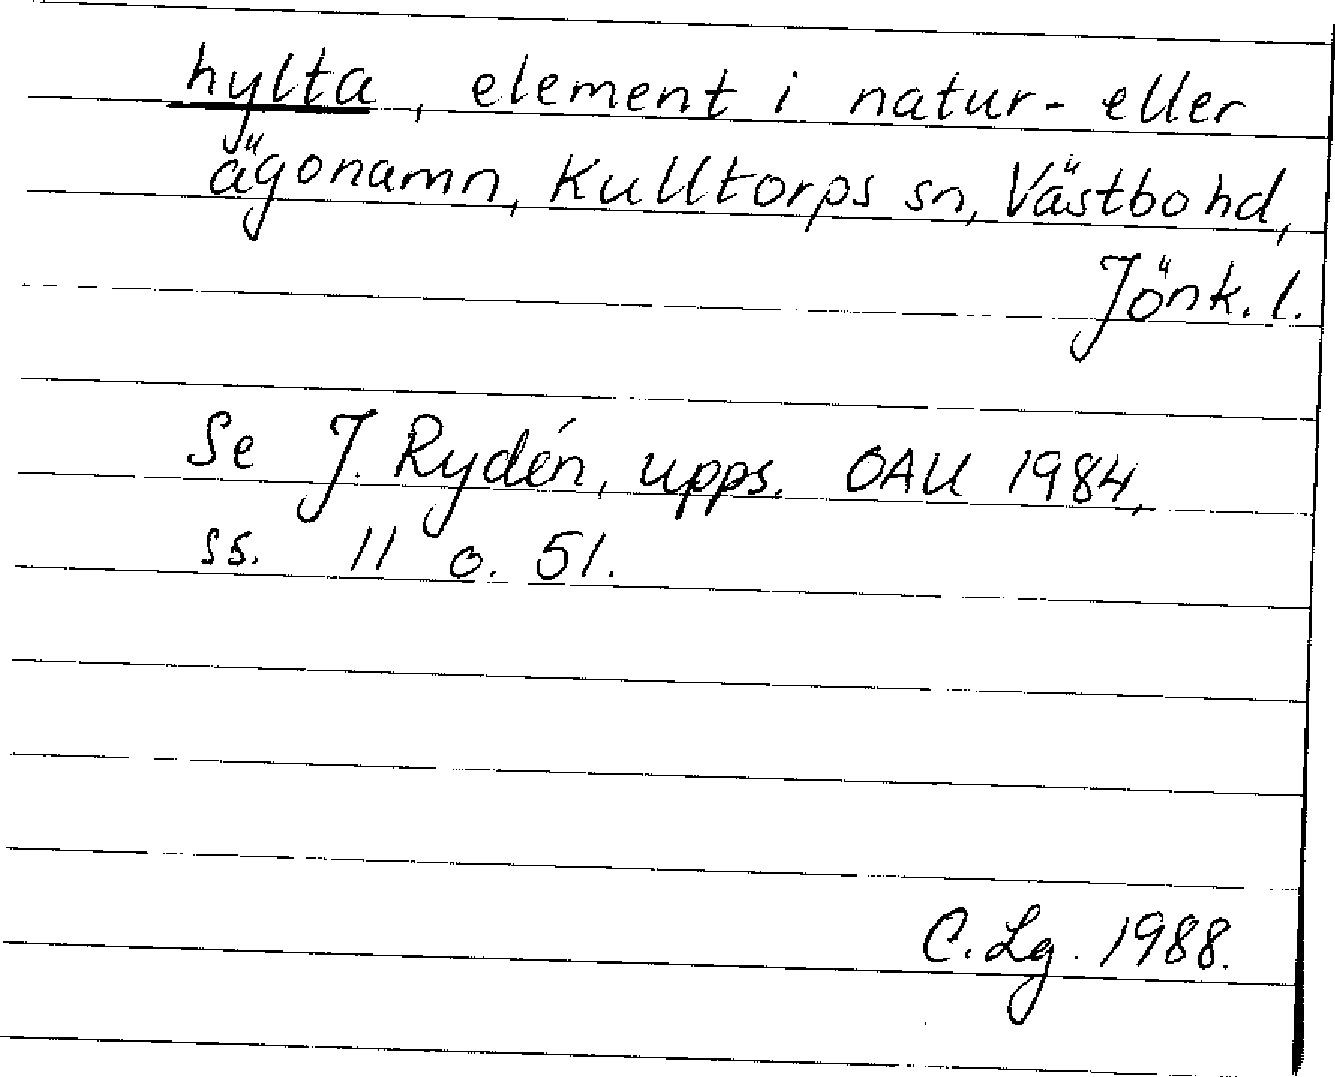 hylta, element i natur- eller
ägonamn, Kulltorps sn, Västbo hd,
Jönk. l.
Se J. Rydén, upps. OAU 1984,
ss. 11 o. 51.
C. Lg. 1988.